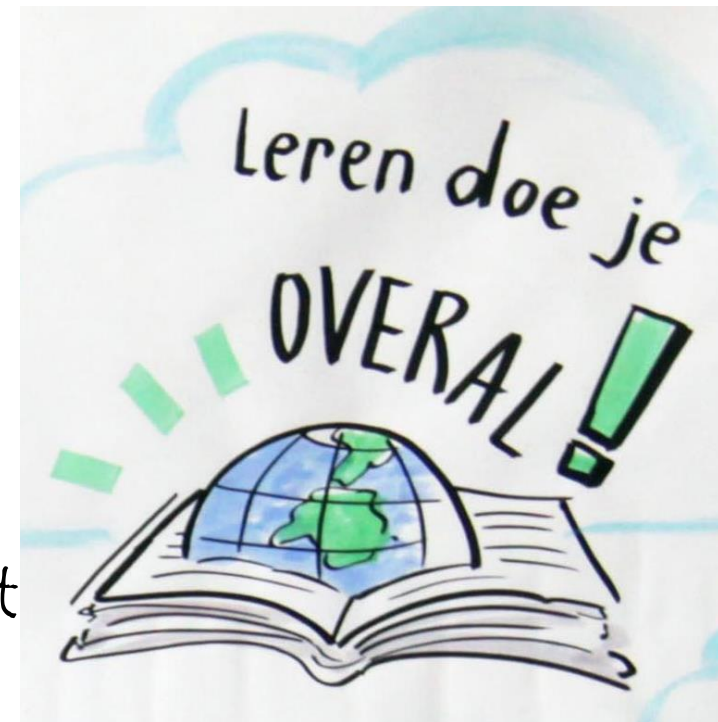 Leren doe je
OVERAL!
t